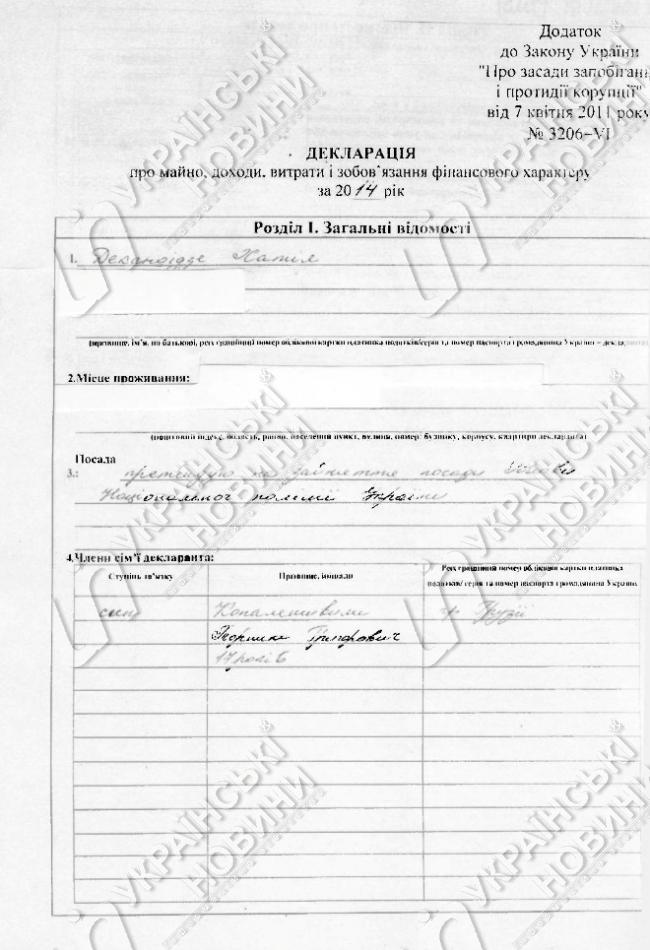 Додаток
до Закону України
"Про засади запобіган
і протидії корупції"
від 7 квітня 2011 року
№ 3206-VI
ДЕКЛАРАЦІЯ
про майно, доходи, витрати і зобов'язання фінансового характеру
за 2014 рік
Розділ I. Загальні відомості
1. Деканоідзе Хатія
(прізвище, ім'я, по батькові, реєстраційний номер облікової картки платника податків/серія та номер паспорта громадянина України – декларанта)
2.Місце проживання:
(поштовий індекс, область, район, населений пункт, вулиця, номер: будинку, корпусу, квартири декларанта)
Посада
3.: претендую на зайняття посади
Національної поліції України
4.Члени сім'ї декларанта:
Ступінь зв'язку
Прізвище, ініціали
Реєстраційний номер облікової картки платника
податків/ серія та номер паспорта громадянина України
син
гр. Грузії
17 років
УКРАЇНСЬКІ
НОВИНИ
УКРАЇНСЬКІ
НОВИНИ
УКРАЇНСЬКІ
НОВИНИ
УКРАЇНСЬКІ
НОВИНИ
УКРАЇНСЬКІ
НОВИНИ
УКРАЇНСЬКІ
НОВИНИ